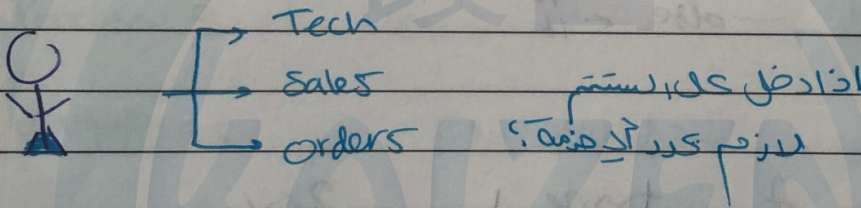 Tech
Sales
orders
اذا دخل على السستم
لازم نحدد أي خدمة؟